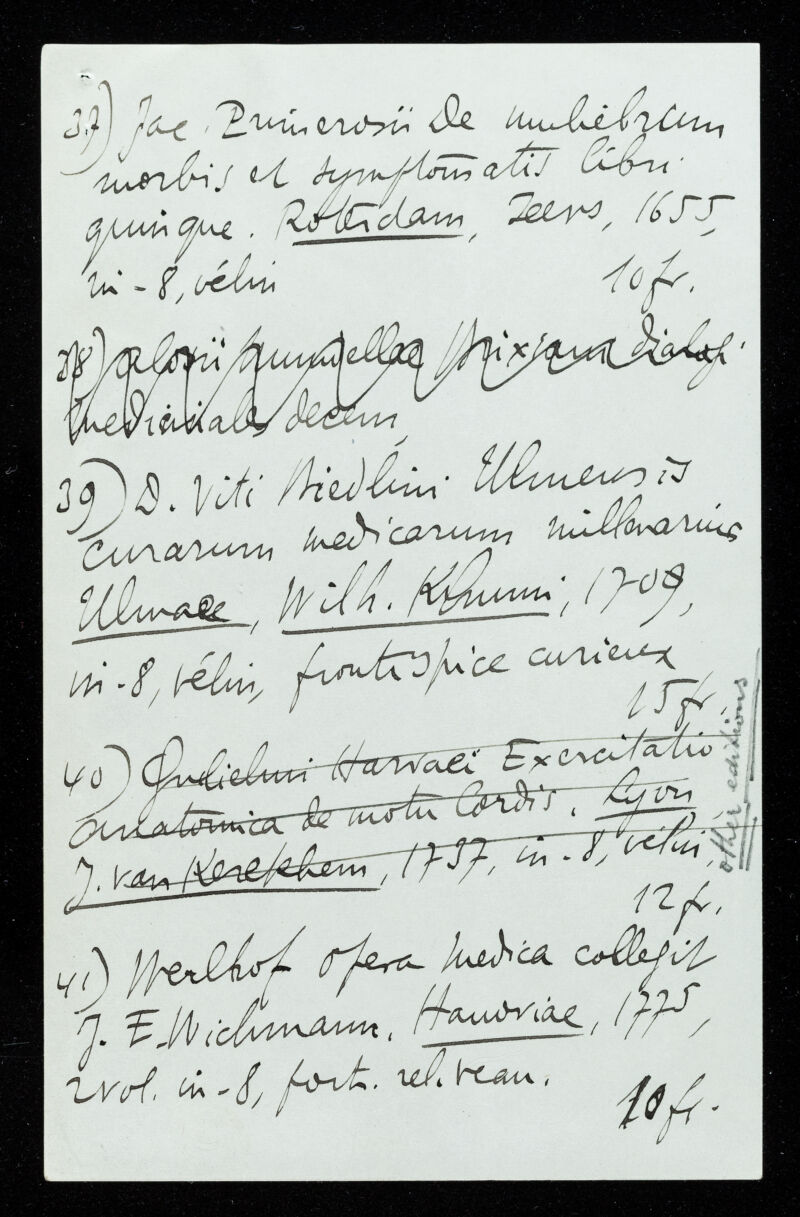 37) Jac. Primerosii De muliebrum
morbis et symptomatis libri
quinque. Rotterdam, Leers, 1655,
in-8, vélin 10 fr.
38) Brixiani dialogi
medicinales decem,
39) D. Viti Riedlini Ulmensis
curarum medicarum millenarius
Ulmae, Wilh. Kühnni, 1709,
in-8, vélin, frontispice curieux
15 fr.
40) Gulielmi Harvaei Exercitatio
anatomica de motu Cordis, Lyon,
J. van Kerckhem, 1737, in-8, vélin,
other editions
12 fr.
41) Werlhof opera medica collegit
J. E. Wichmann, Hanoviae, 1775,
2 vol. in-8, fort. rel. veau.
10 fr.